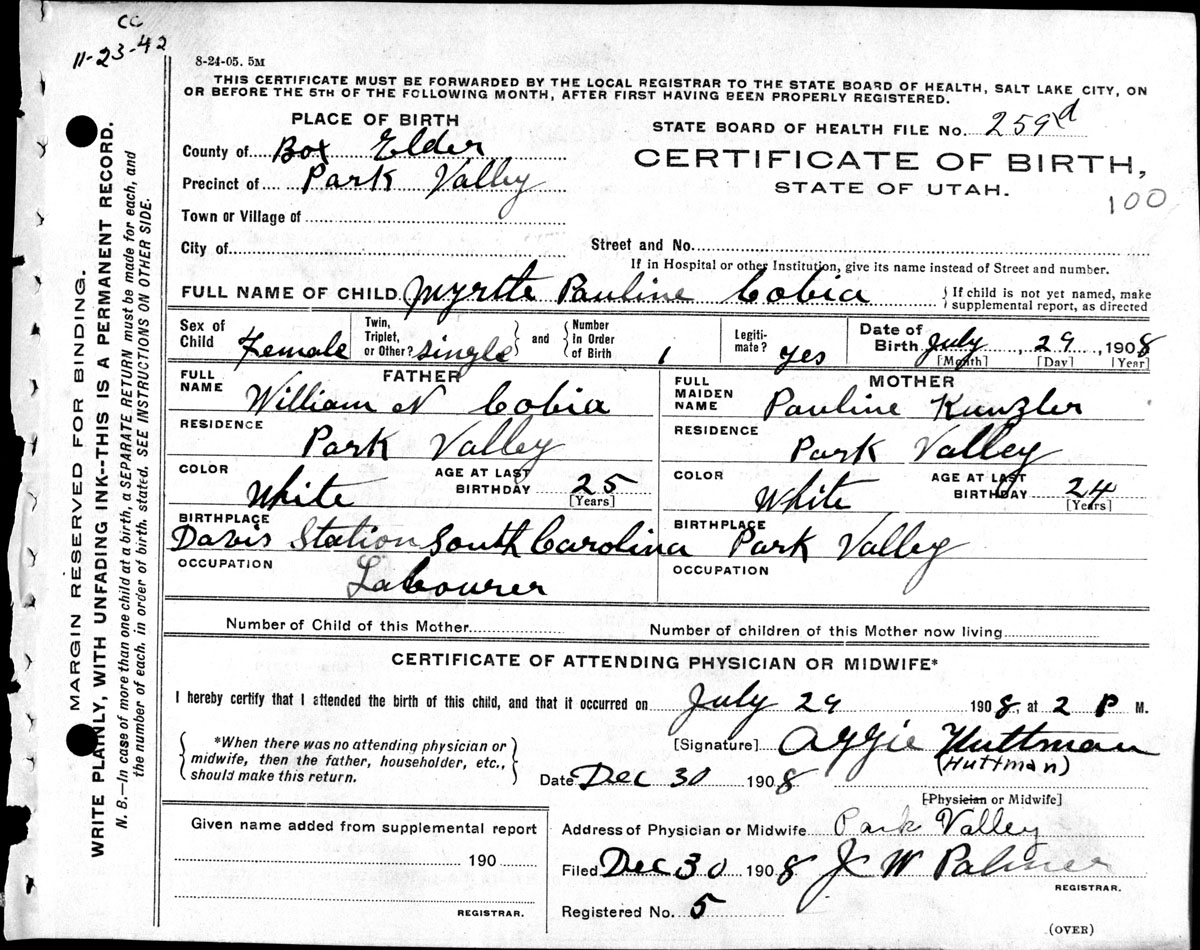 CC
11-23-42
8-24-05. 5M
THIS CERTIFICATE MUST BE FORWARDED BY THE LOCAL REGISTRAR TO THE STATE BOARD OF HEALTH, SALT LAKE CITY, ON
OR BEFORE THE 5TH OF THE FOLLOWING MONTH, AFTER FIRST HAVING BEEN PROPERLY REGISTERED.
PLACE OF BIRTH
County of Box Elder
Precinct of Park Valley
Town or Village of
City of
STATE BOARD OF HEALTH FILE No. 259d
CERTIFICATE OF BIRTH,
STATE OF UTAH.
100
Street and No.
If in Hospital or other Institution, give its name instead of Street and number.
FULL NAME OF CHILD Myrtle Pauline Cobia { If child is not yet named, make
supplemental report, as directed
Sex of Child Female
Twin, Triplet, or Other? single } and { Number In Order of Birth 1
Legiti-mate? yes
Date of Birth July, 29, 1908
[Month] [Day] [Year]
FATHER
FULL NAME William N Cobia
RESIDENCE Park Valley
COLOR White AGE AT LAST BIRTHDAY 25
[Years]
BIRTHPLACE Davis Station South Carolina
OCCUPATION Labourer
MOTHER
FULL MAIDEN NAME Pauline Kunzler
RESIDENCE Park Valley
COLOR White AGE AT LAST BIRTHDAY 24
[Years]
BIRTHPLACE Park Valley
OCCUPATION
Number of Child of this Mother
Number of children of this Mother now living
CERTIFICATE OF ATTENDING PHYSICIAN OR MIDWIFE*
I hereby certify that I attended the birth of this child, and that it occurred on July 29 1908, at 2 P M.
{ *When there was no attending physician or
midwife, then the father, householder, etc.,
should make this return. }
[Signature] Aggie Huttman
(Huttman)
Date Dec 30 1908
[Physician or Midwife]
Given name added from supplemental report
190
REGISTRAR.
Address of Physician or Midwife Park Valley
Filed Dec 30 1908 J W Palmer
REGISTRAR.
Registered No. 5
(OVER)
MARGIN RESERVED FOR BINDING.
WRITE PLAINLY, WITH UNFADING INK--THIS IS A PERMANENT RECORD.
N. B.—In case of more than one child at a birth, a SEPARATE RETURN must be made for each, and
the number of each, in order of birth, stated. SEE INSTRUCTIONS ON OTHER SIDE.